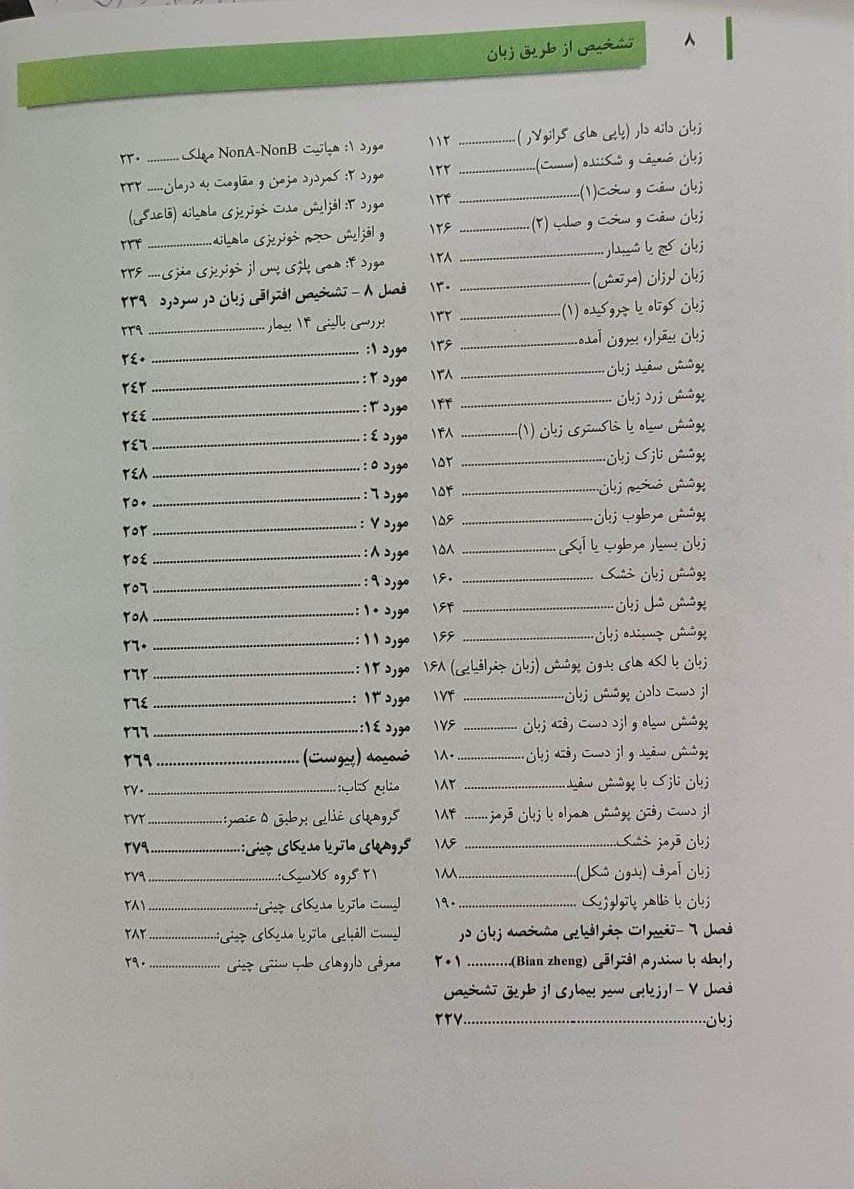 ۸
تشخیص از طریق زبان
زبان دانه دار (پاپی های گرانولار ) ................. ۱۱۲
زبان ضعیف و شکننده (سست)....................... ۱۲۲
زبان سفت و سخت(۱)................................... ۱۲۴
زبان سفت و سخت و صلب (۲) ..................... ۱۲۶
زبان کج یا شیبدار......................................... ۱۲۸
زبان لرزان (مرتعش) ..................................... ۱۳۰
زبان کوتاه یا چروکیده (۱)............................. ۱۳۲
زبان بیقرار، بیرون آمده.................................. ۱۳۶
پوشش سفید زبان......................................... ۱۳۸
پوشش زرد زبان ........................................... ۱۴۴
پوشش سیاه یا خاکستری زبان (۱)................ ۱۴۸
پوشش نازک زبان......................................... ۱۵۲
پوشش ضخیم زبان....................................... ۱۵۴
پوشش مرطوب زبان..................................... ۱۵۶
زبان بسیار مرطوب یا آبکی ........................... ۱۵۸
پوشش زبان خشک ...................................... ۱۶۰
پوشش شل زبان........................................... ۱۶۴
پوشش چسبنده زبان..................................... ۱۶۶
زبان با لکه های بدون پوشش (زبان جغرافیایی) ۱۶۸
از دست دادن پوشش زبان............................. ۱۷۴
پوشش سیاه و ازد دست رفته زبان ................ ۱۷۶
پوشش سفید و از دست رفته زبان....................۱۸۰
زبان نازک با پوشش سفید............................. ۱۸۲
از دست رفتن پوشش همراه با زبان قرمز....... ۱۸۴
زبان قرمز خشک........................................... ۱۸۶
زبان آمرف (بدون شکل)..................................۱۸۸
زبان با ظاهر پاتولوژیک ..................................۱۹۰
فصل ۶ -تغییرات جغرافیایی مشخصه زبان در
رابطه با سندرم افتراقی (Bian zheng).......... ۲۰۱
فصل ۷ - ارزیابی سیر بیماری از طریق تشخیص
زبان.......................................................۲۲۷
مورد ۱: هپاتیت NonA-NonB مهلک .......... ۲۳۰
مورد ۲: کمردرد مزمن و مقاومت به درمان..... ۲۳۲
مورد ۳: افزایش مدت خونریزی ماهیانه (قاعدگی)
و افزایش حجم خونریزی ماهیانه................... ۲۳۴
مورد ۴: همی پلژی پس از خونریزی مغزی.... ۲۳۶
فصل ۸ - تشخیص افتراقی زبان در سردرد ۲۳۹
بررسی بالینی ۱۴ بیمار ................................. ۲۳۹
مورد ۱: ................................................ ۲۴۰
مورد ۲ : ............................................... ۲۴۲
مورد ۳ : ............................................... ۲۴۴
مورد ۴ : ............................................... ۲۴۶
مورد ۵ : ............................................... ۲۴۸
مورد ۶ : ............................................... ۲۵۰
مورد ۷ : ............................................... ۲۵۲
مورد ۸ : ............................................... ۲۵۴
مورد ۹ : ............................................... ۲۵۶
مورد ۱۰ :.............................................. ۲۵۸
مورد ۱۱ :.............................................. ۲۶۰
مورد ۱۲ :.............................................. ۲۶۲
مورد ۱۳ :.............................................. ۲۶۴
مورد ۱۴:............................................... ۲۶۶
ضمیمه (پیوست) ................................. ۲۶۹
منابع کتاب:................................................ ۲۷۰
گروههای غذایی برطبق ۵ عنصر:................... ۲۷۲
گروههای ماتریا مدیکای چینی:.....................۲۷۹
۲۱ گروه کلاسیک:................................. ۲۷۹
لیست ماتریا مدیکای چینی:............................ ۲۸۱
لیست الفبایی ماتریا مدیکای چینی:................. ۲۸۲
معرفی داروهای طب سنتی چینی .................. ۲۹۰